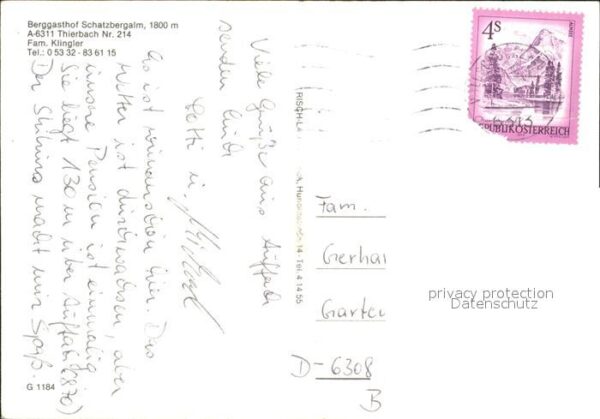 Berggasthof Schatzbergalm, 1800 m
A-6311 Thierbach Nr. 214
Fam. Klingler
Tel.: 0 53 32 - 83 61 15
Viele Grüße aus Auffach
senden Euch
Betti u. Michael
Es ist wunderschön hier. Das
Wetter ist durchwachsen, aber
unsere Pension ist einmalig
Sie liegt 130 m über Auffach (870)
Der Skikurs macht mir Spaß.
G 1184
14 - Tel. 4 14 55
4s
REPUBLIK ÖSTERREICH
Fam.
Gerhar
Garten
D-6308
B
privacy protection
Datenschutz